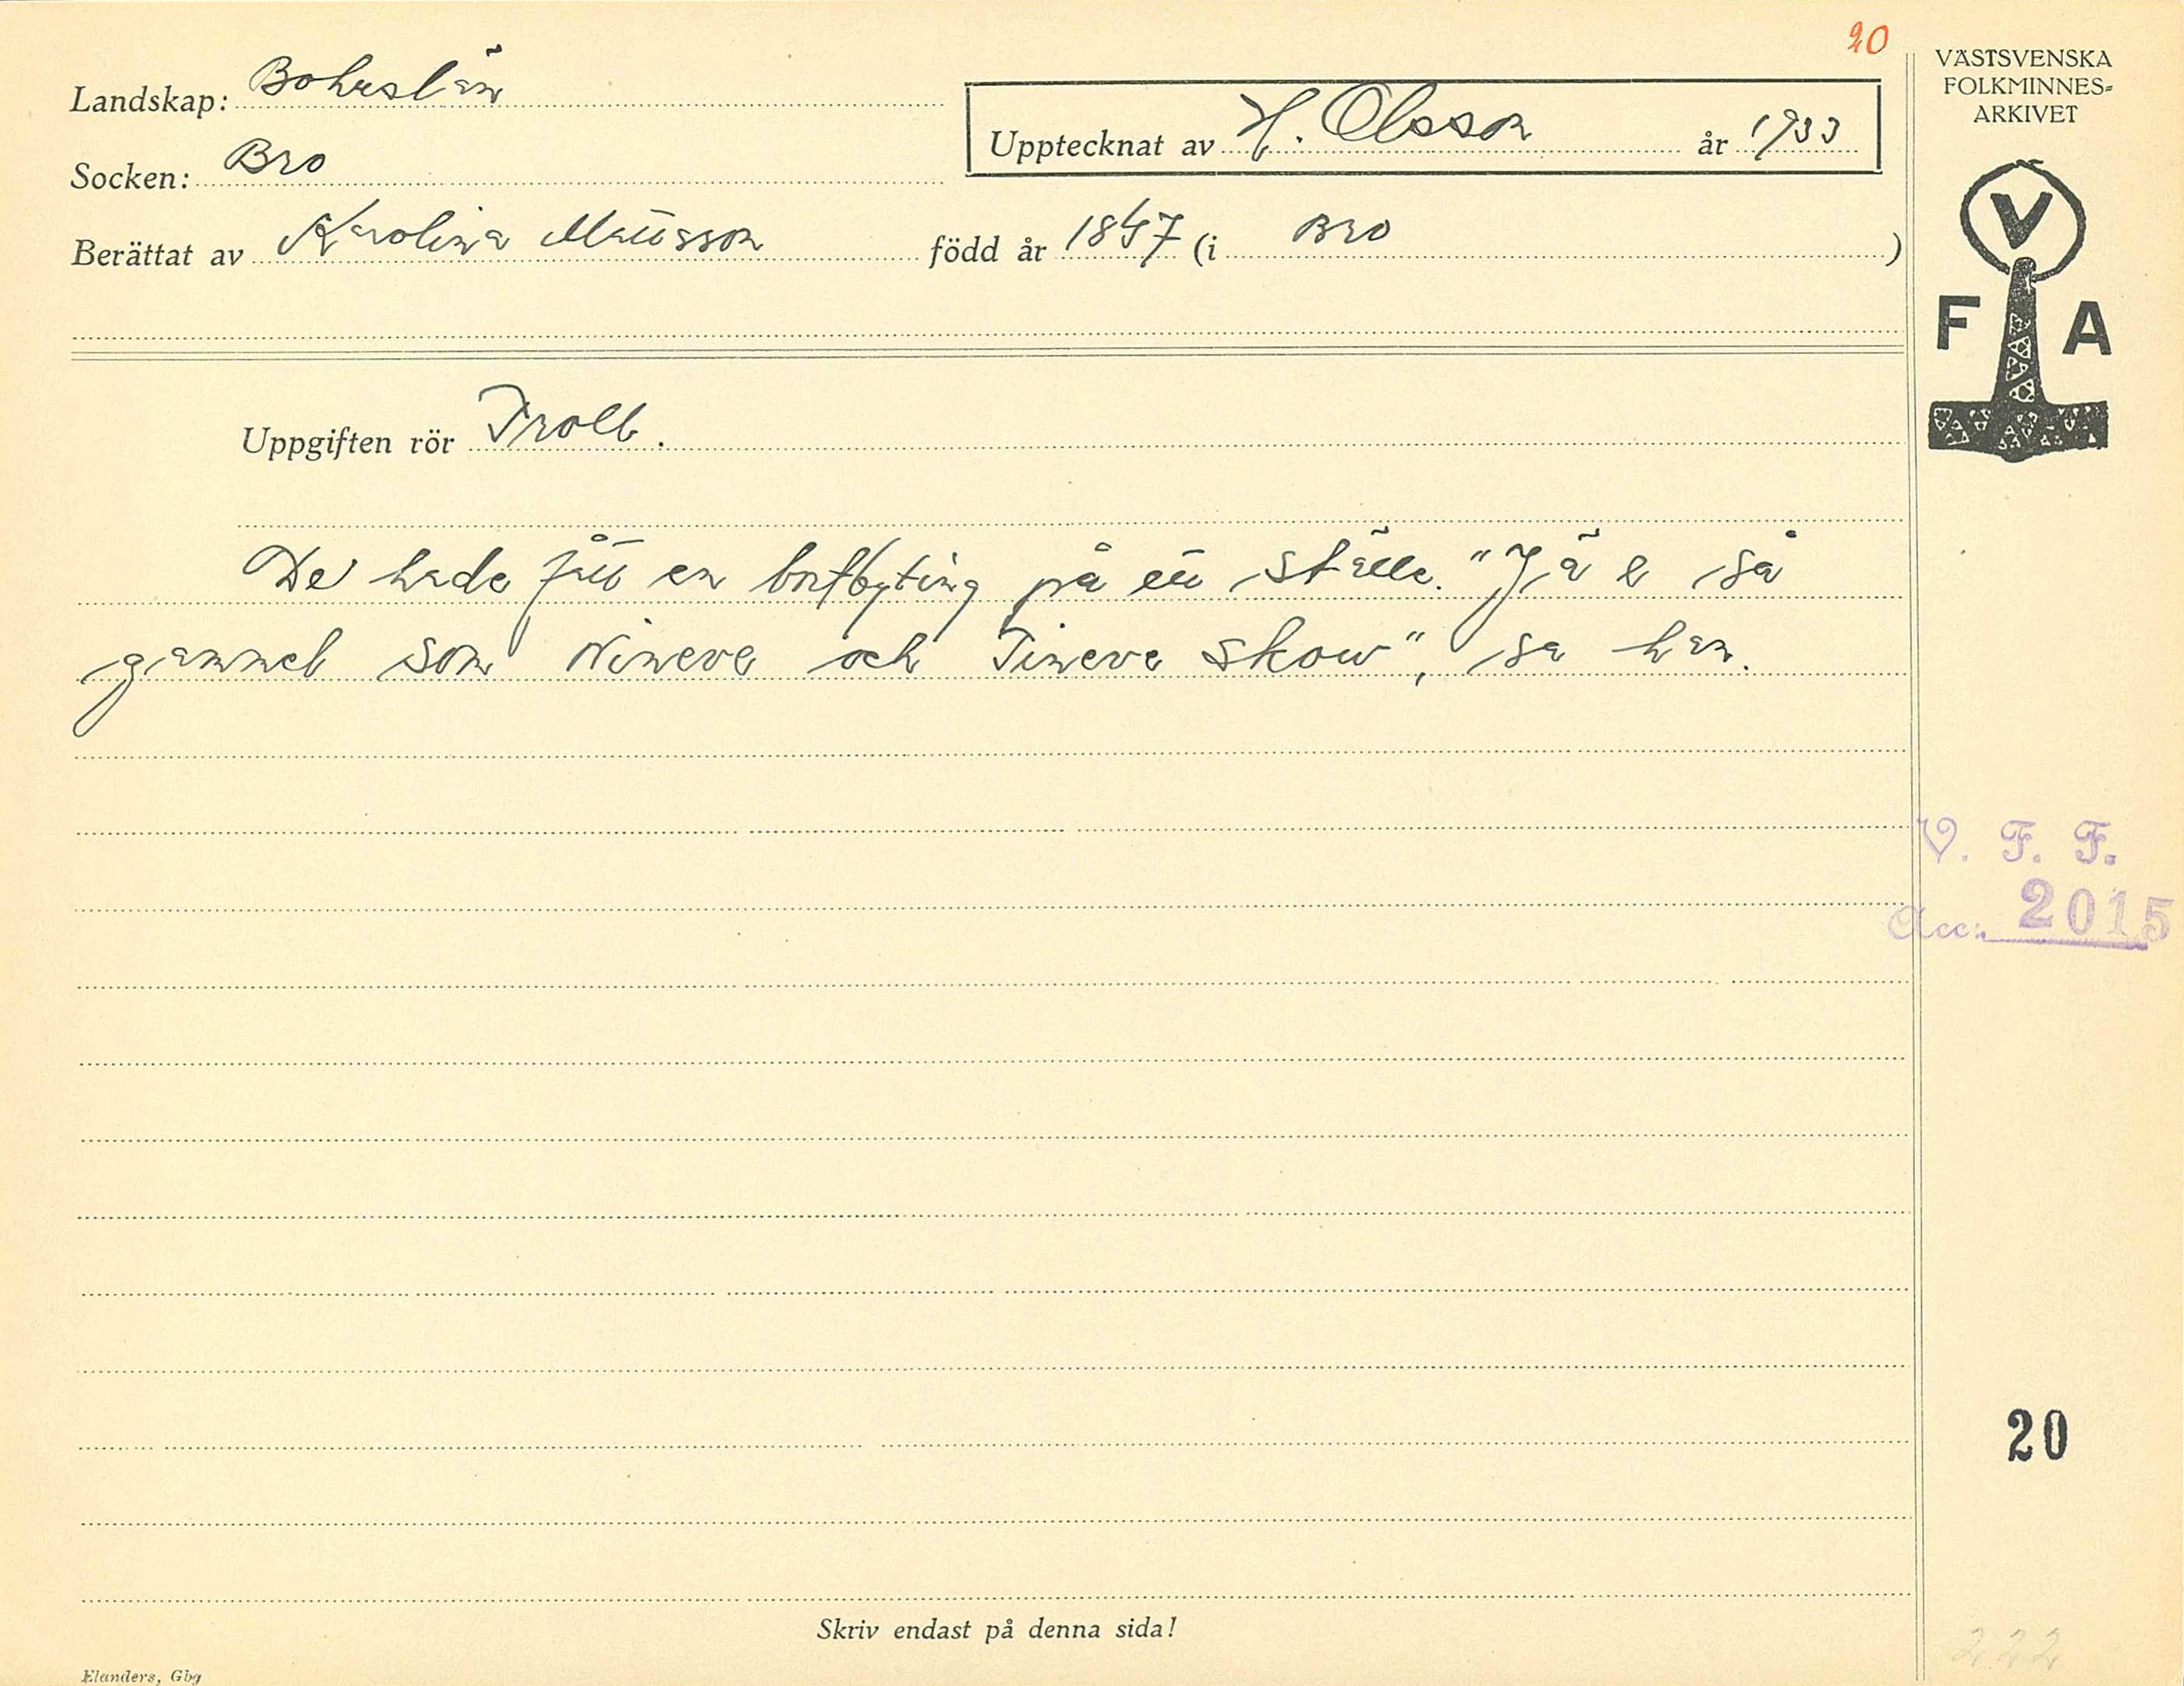 20
VÄSTSVENSKA
FOLKMINNES-
ARKIVET
Landskap: Bohuslän
Upptecknat av H. Olsson år 1933
Socken: Bro
Berättat av Karolina Mattsson född år 1847 (i Bro)
V
F A
Uppgiften rör Troll.
De hade fått en bortbyting på ett ställe. "Jä e så
gammel som Nineve och Tineve skow", sa han.
V. F. F.
Acc: 2015
20
Skriv endast på denna sida!
222
Elanders, Gbg